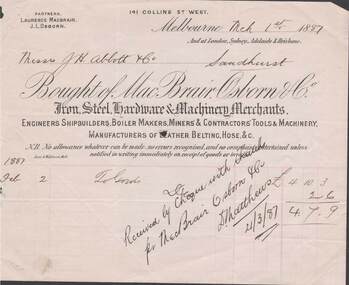 PARTNERS,
LAURENCE MACBRAIR.
J. L. OSBORN.
141 COLLINS ST WEST.
Melbourne, Mch 1st 1887
And at London, Sydney, Adelaide & Brisbane.
Messrs J H Abbott & Co
Sandhurst
Bought of MacBrair, Osborn & Co.
Iron, Steel, Hardware & Machinery Merchants.
ENGINEERS SHIPBUILDERS, BOILER MAKERS, MINERS & CONTRACTORS' TOOLS & MACHINERY,
MANUFACTURERS OF LEATHER BELTING, HOSE, &C.
N.B. No allowance whatever can be made, no errors recognised, and no complaints entertained unless
notified in writing immediately on receipt of goods or invoice.
1887
Feb 2 To Goods £ 4 10 3
2 6
4. 7. 9
Received by Cheque with
for MacBrair Osborn & Co
Matthews
4/3/87